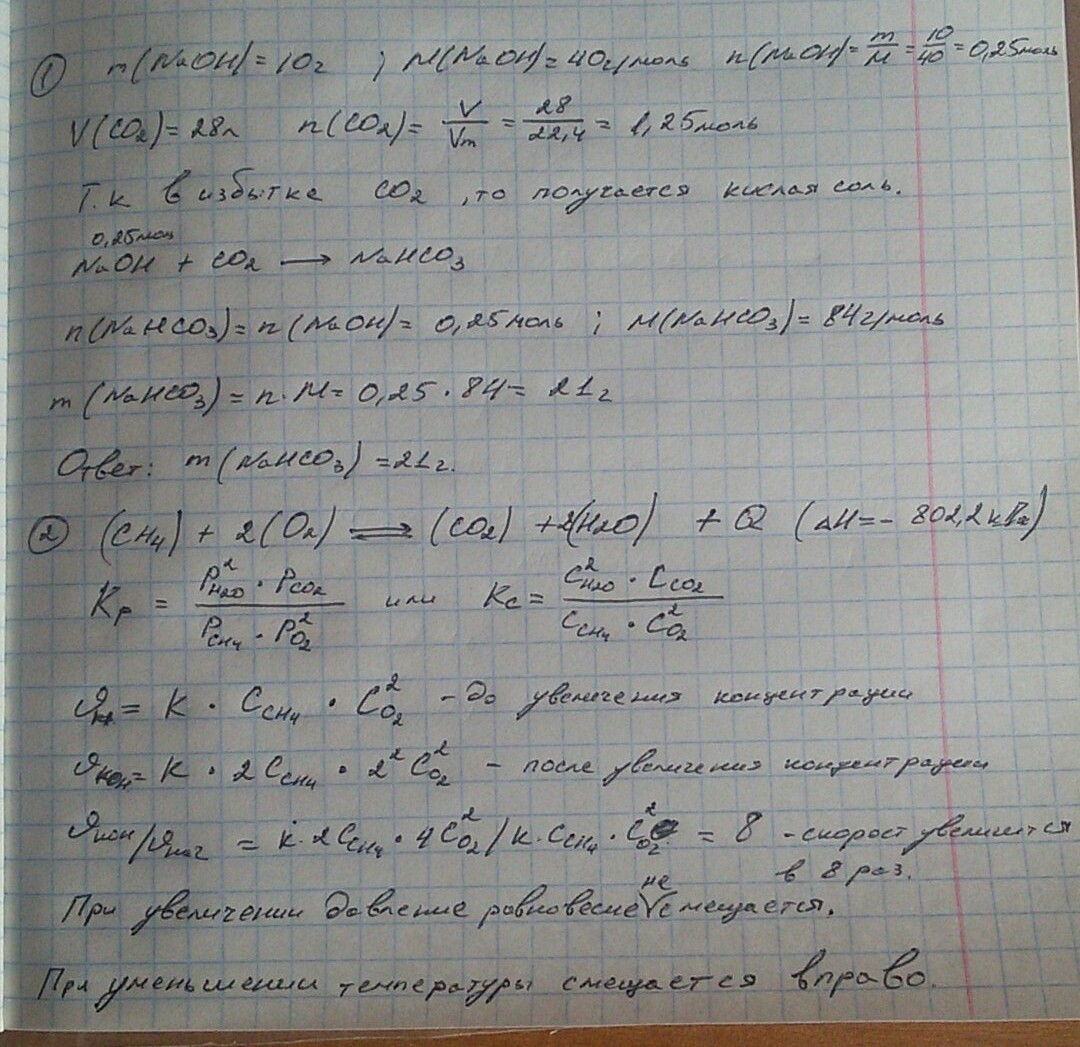 ① m(NaOH)=10г ; M(NaOH)=40г/моль n(NaOH)=m/M=10/40=0,25моль
V(CO₂)=28л n(CO₂)=V/Vm=28/22,4=1,25моль
Т.к в избытке CO₂, то получается кислая соль.
0,25моль
NaOH + CO₂ → NaHCO₃
n(NaHCO₃)=n(NaOH)=0,25моль ; M(NaHCO₃)=84г/моль
m(NaHCO₃)=n·M=0,25·84=21г
Ответ: m(NaHCO₃)=21г.
② (CH₄) + 2(O₂) ⇌ (CO₂) +2(H₂O) + Q (ΔH=- 802,2 кДж)
Kp = P²H₂O · PCO₂ / PCH₄ · PO₂² или Kc= C²H₂O · CCO₂ / CCH₄ · CO₂²
= K · CCH₄ · CO₂² - до увеличения концентрации
υкон= K · 2CCH₄ · 2²CO₂² - после увеличения концентрации
υкон/υнач = k·2CCH₄ · 4CO₂² / k·CCH₄ · CO₂² = 8 -скорост увеличится
в 8 раз.
При увеличении давление равновесие не смещается.
При уменьшении температуры смещается вправо.